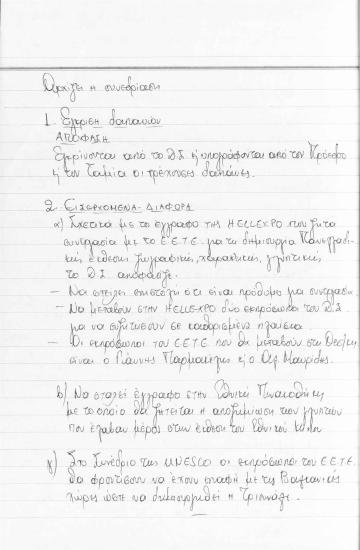 Αρχίζει η συνεδρίαση
1. Έγκριση δαπανών
ΑΠΟΦΑΣΗ
Εγκρίνονται από το Δ.Σ. ή υπογράφονται από τον Πρόεδρο
ή τον Ταμία οι τρέχουσες δαπάνες.
2. ΕΙΣΕΡΧΟΜΕΝΑ-ΔΙΑΦΟΡΑ
α) Σχετικά με το έγγραφο της HELLEXPO που ζητά
συνεργασία με το Ε.Ε.Τ.Ε. για τη δημιουργία Πανελλαδι-
κής έκθεσης ζωγραφικής, χαρακτικής, γλυπτικής
το Δ.Σ. αποφάσισε.
— Να στείλει επιστολή ότι είναι πρόθυμο για συνεργασία.
— Να μεταβούν στην HELLEXPO δύο εκπρόσωποι του Δ.Σ.
για να συζητήσουν σε καθορισμένα πλαίσια.
— Οι εκπρόσωποι του ΕΕΤΕ που θα μεταβούν στη Θεσ/κη
είναι ο Γιάννης Παρμακέλης κ' ο Θεμ. Μαυρίδης.
b) Να σταλεί έγγραφο στην Εθνική Πινακοθήκη
με το οποίο θα ζητείται η αποζημίωση των γλυπτών
που έλαβαν μέρος στην έκθεση του Εθνικού Κήπου
γ) Στο Συνέδριο της UNESCO οι εκπρόσωποι του Ε.Ε.Τ.Ε.
θα φροντίσουν να έχουν επαφή με τις Βαλκανικές
χώρες ώστε να δημιουργηθεί η